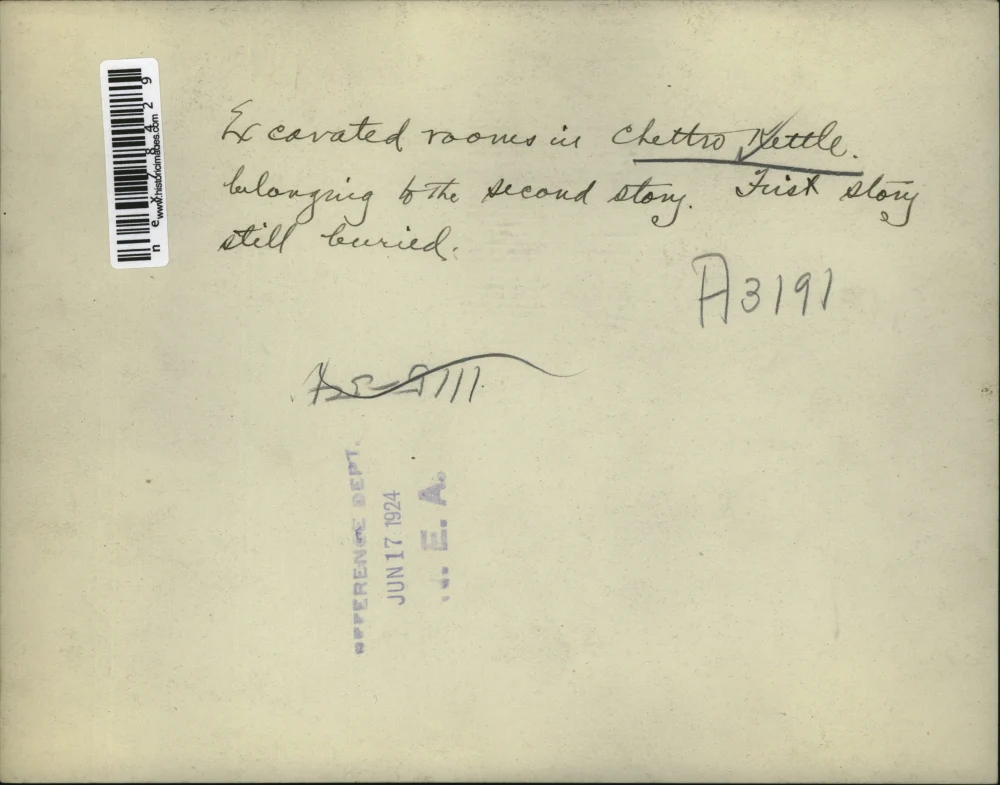 Excavated rooms in Chettro Kettle.
belonging to the second story. First story
still buried.
A3191
REFERENCE DEPT.
JUN 17 1924
E. A.
www.historicimages.com
nex78429